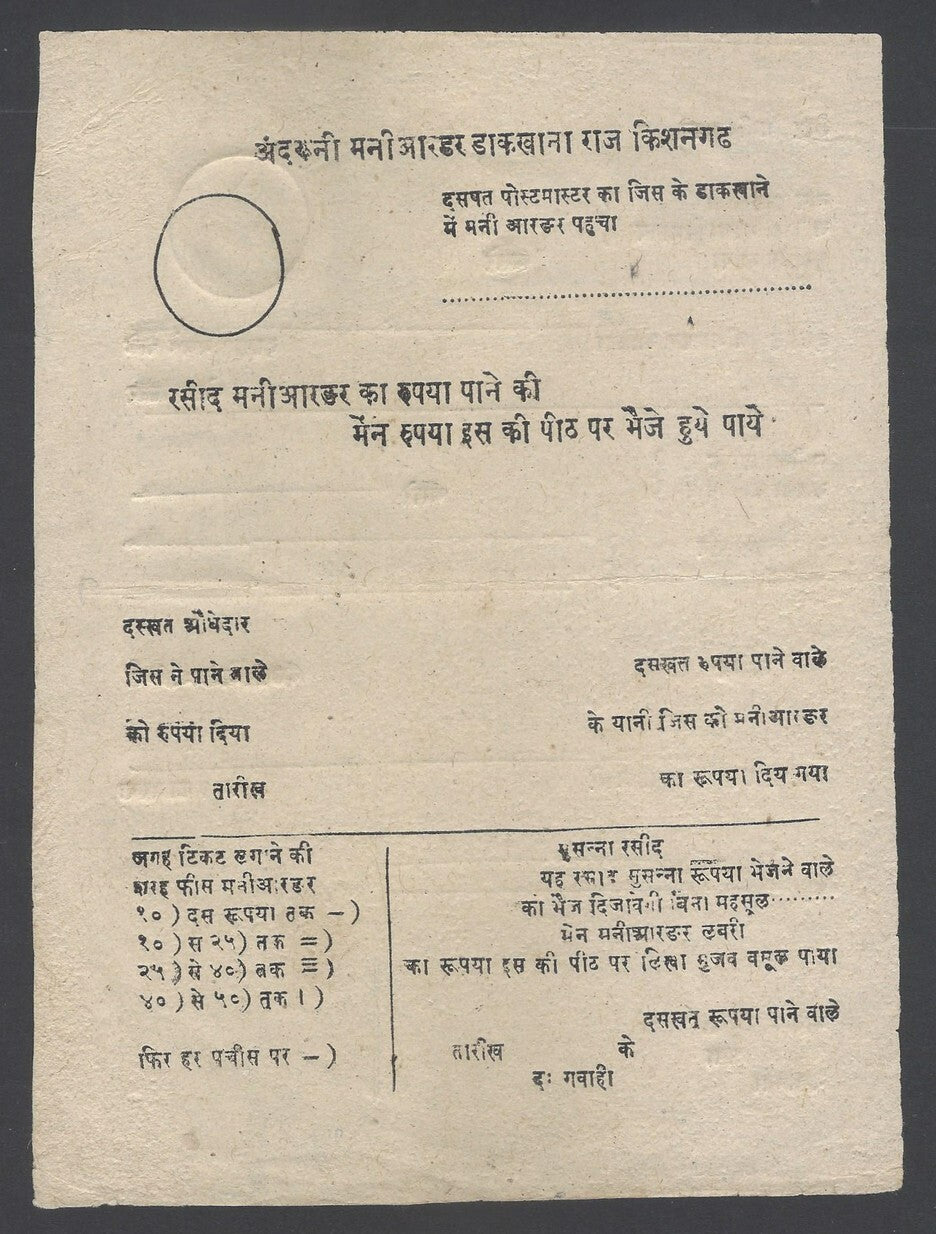 अंदरूनी मनीआरडर डाकखाना राज किशनगढ
दसषत पोस्टमास्टर का जिस के डाकखाने
में मनी आरडर पहुचा
रसीद मनीआरडर का रुपया पाने की
मेंन रुपया इस की पीठ पर भैजे हुये पाये
दस्खत औधेदार
जिस ने पाने वाले
को रुपया दिया
तारीख
दसखत रुपया पाने वाले
के यानी जिस को मनीआरडर
का रूपया दिय गया
जगह टिकट लगाने की
शरह फीस मनीआरडर
१०) दस रूपया तक -)
१०) स २५) तक =)
२५) से ४०) तक ≡)
४०) से ५०) तक ।)
फिर हर पचीस पर -)
मुसन्ना रसीद
यह रसीद मुसन्ना रूपया भेजने वाले
को भैज दिजावगी बिना महसूल
मेन मनीआरडर लवरी
का रूपया इस की पीठ पर लिखा मुजब वसूल पाया
दसखत रूपया पाने वाले
तारीख के
दः गवाही